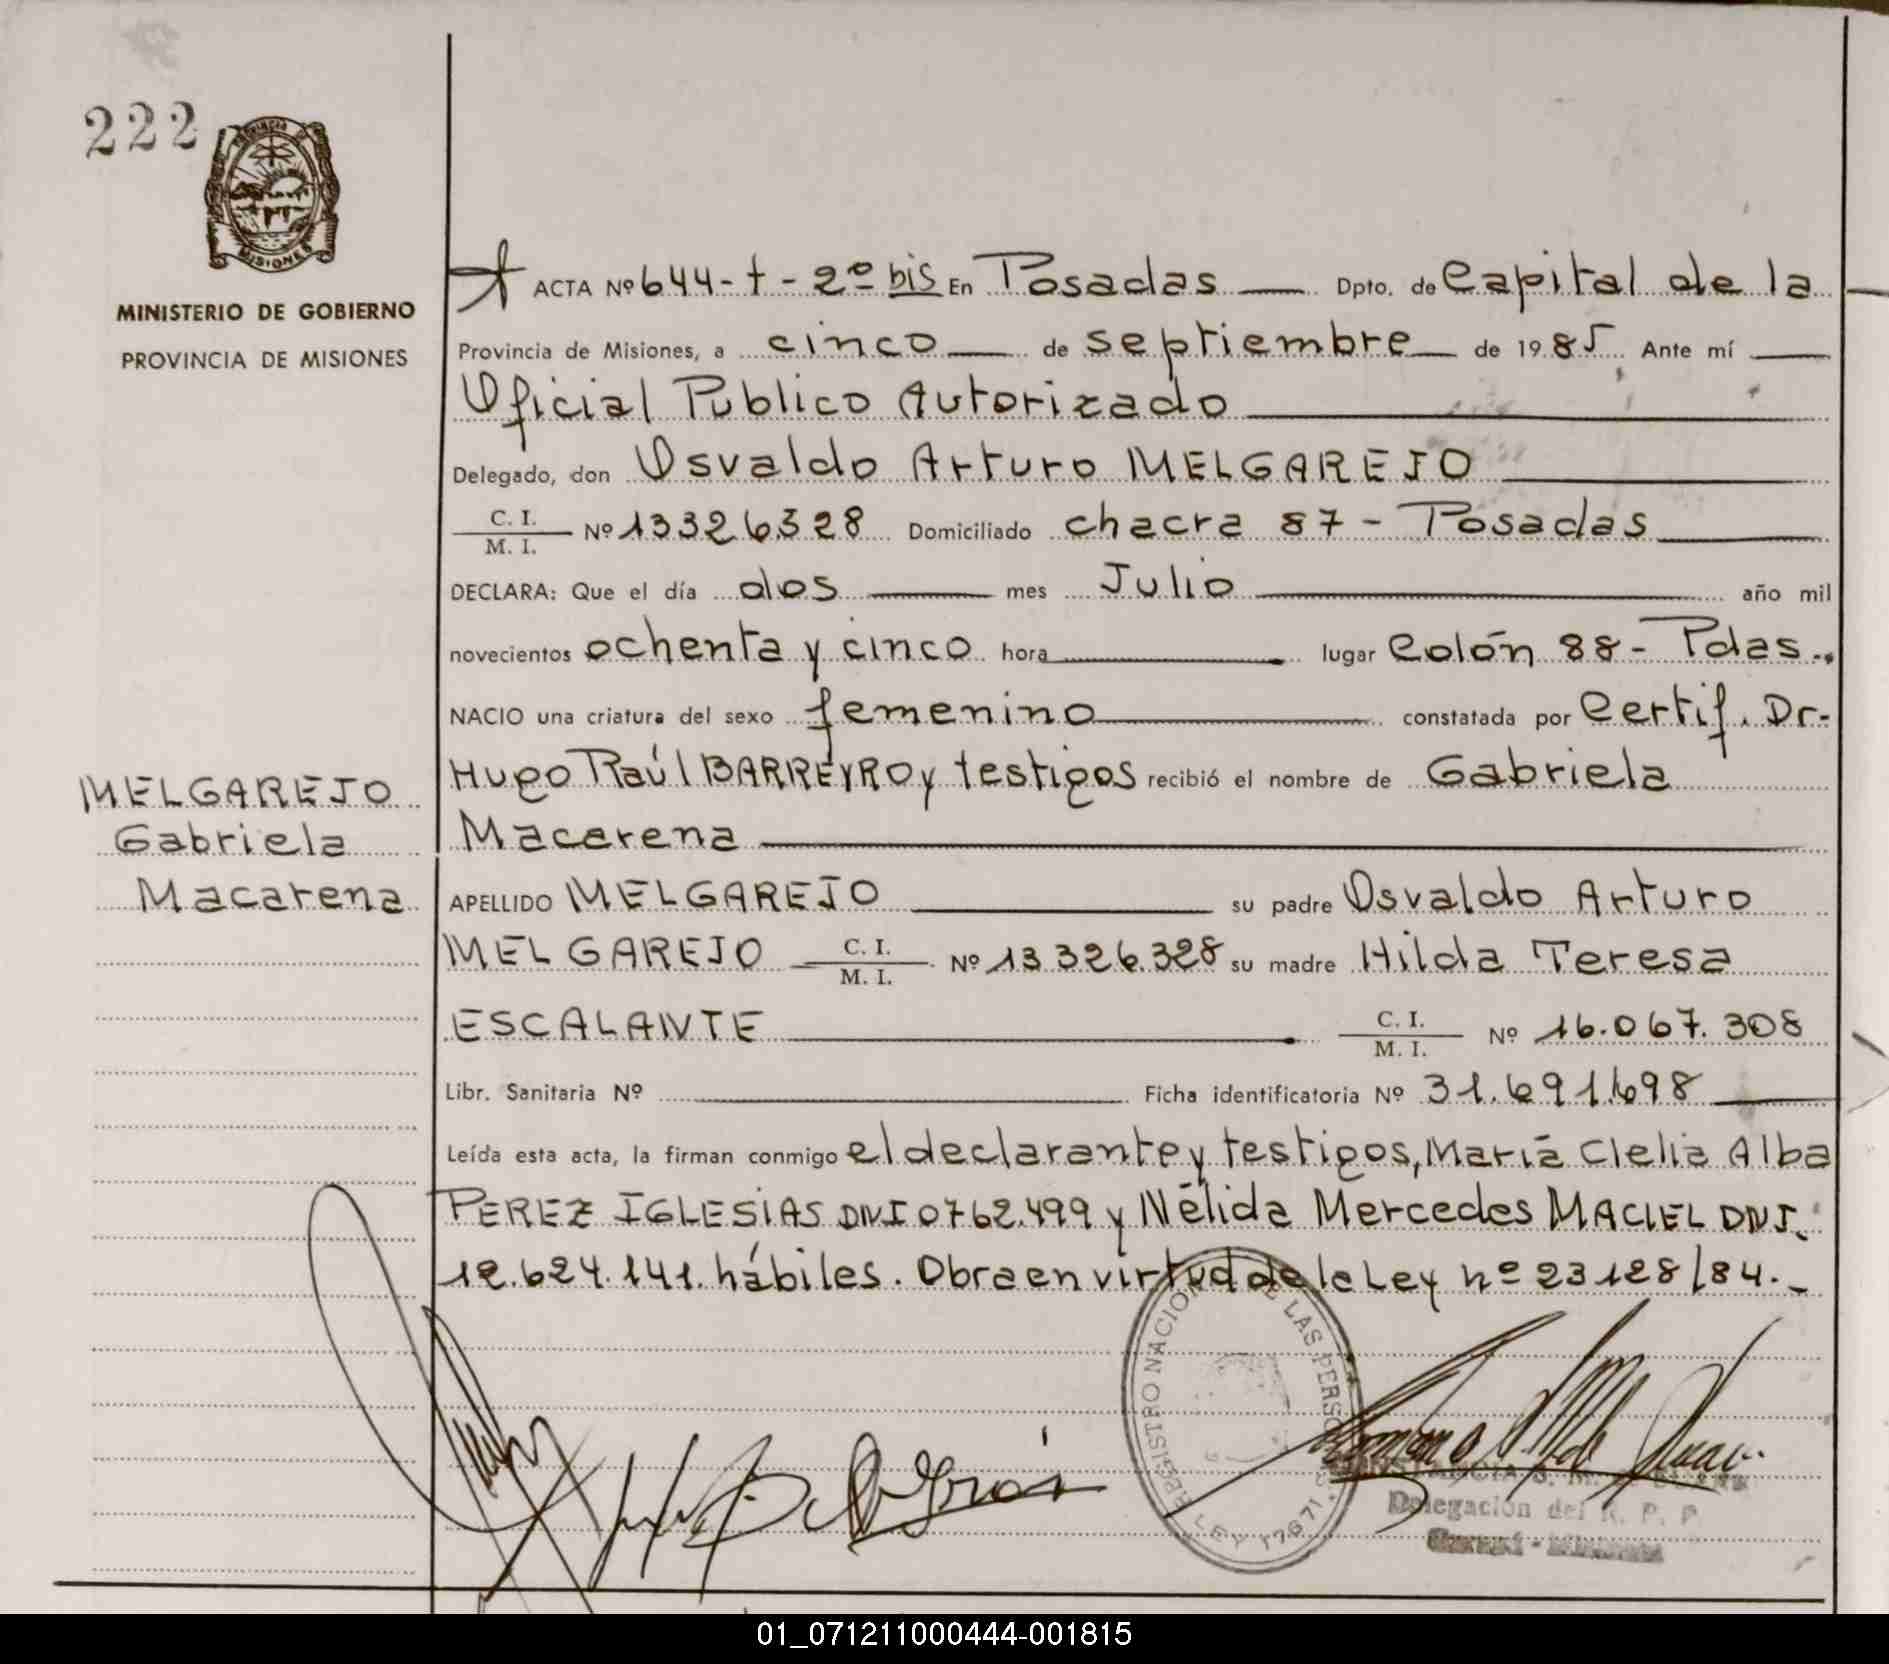 222
PROVINCIA DE
MISIONES
MINISTERIO DE GOBIERNO
PROVINCIA DE MISIONES
MELGAREJO
Gabriela
Macarena
ACTA Nº 644-t-2º bis En Posadas Dpto. de Capital de la
Provincia de Misiones, a cinco de septiembre de 1985 Ante mí
Oficial Publico Autorizado
Delegado, don Osvaldo Arturo MELGAREJO
C. I. / M. I. Nº 13326328 Domiciliado chacra 87 - Posadas
DECLARA: Que el día dos mes Julio año mil
novecientos ochenta y cinco hora lugar Colón 88 - Pdas.
NACIO una criatura del sexo femenino constatada por Certif. Dr-
Hugo Raúl BARREYRO y testigos recibió el nombre de Gabriela
Macarena
APELLIDO MELGAREJO su padre Osvaldo Arturo
MELGAREJO C. I. / M. I. Nº 13326.328 su madre Hilda Teresa
ESCALANTE C. I. / M. I. Nº 16.067.308
Libr. Sanitaria Nº Ficha identificatoria Nº 31.691.698
Leída esta acta, la firman conmigo el declarante y testigos, María Clelia Alba
PEREZ IGLESIAS DNI 0762.499 y Nélida Mercedes MACIEL DNI.
12.624.141. hábiles. Obra en virtud de la Ley nº 23128/84.-
REGISTRO NACIONAL DE LAS PERSONAS
LEY 17671
Delegación del R. P. P.
01_071211000444-001815